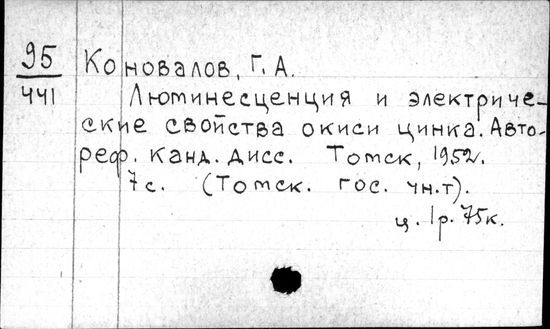 95 Коновалов, Г. А.
441 Люминесценция и электриче-
ские свойства окиси цинка. Авто-
реф. канд. дисс. Томск, 1952.
7 с. (Томск. гос. ун.т).
ц. 1р. 75к.